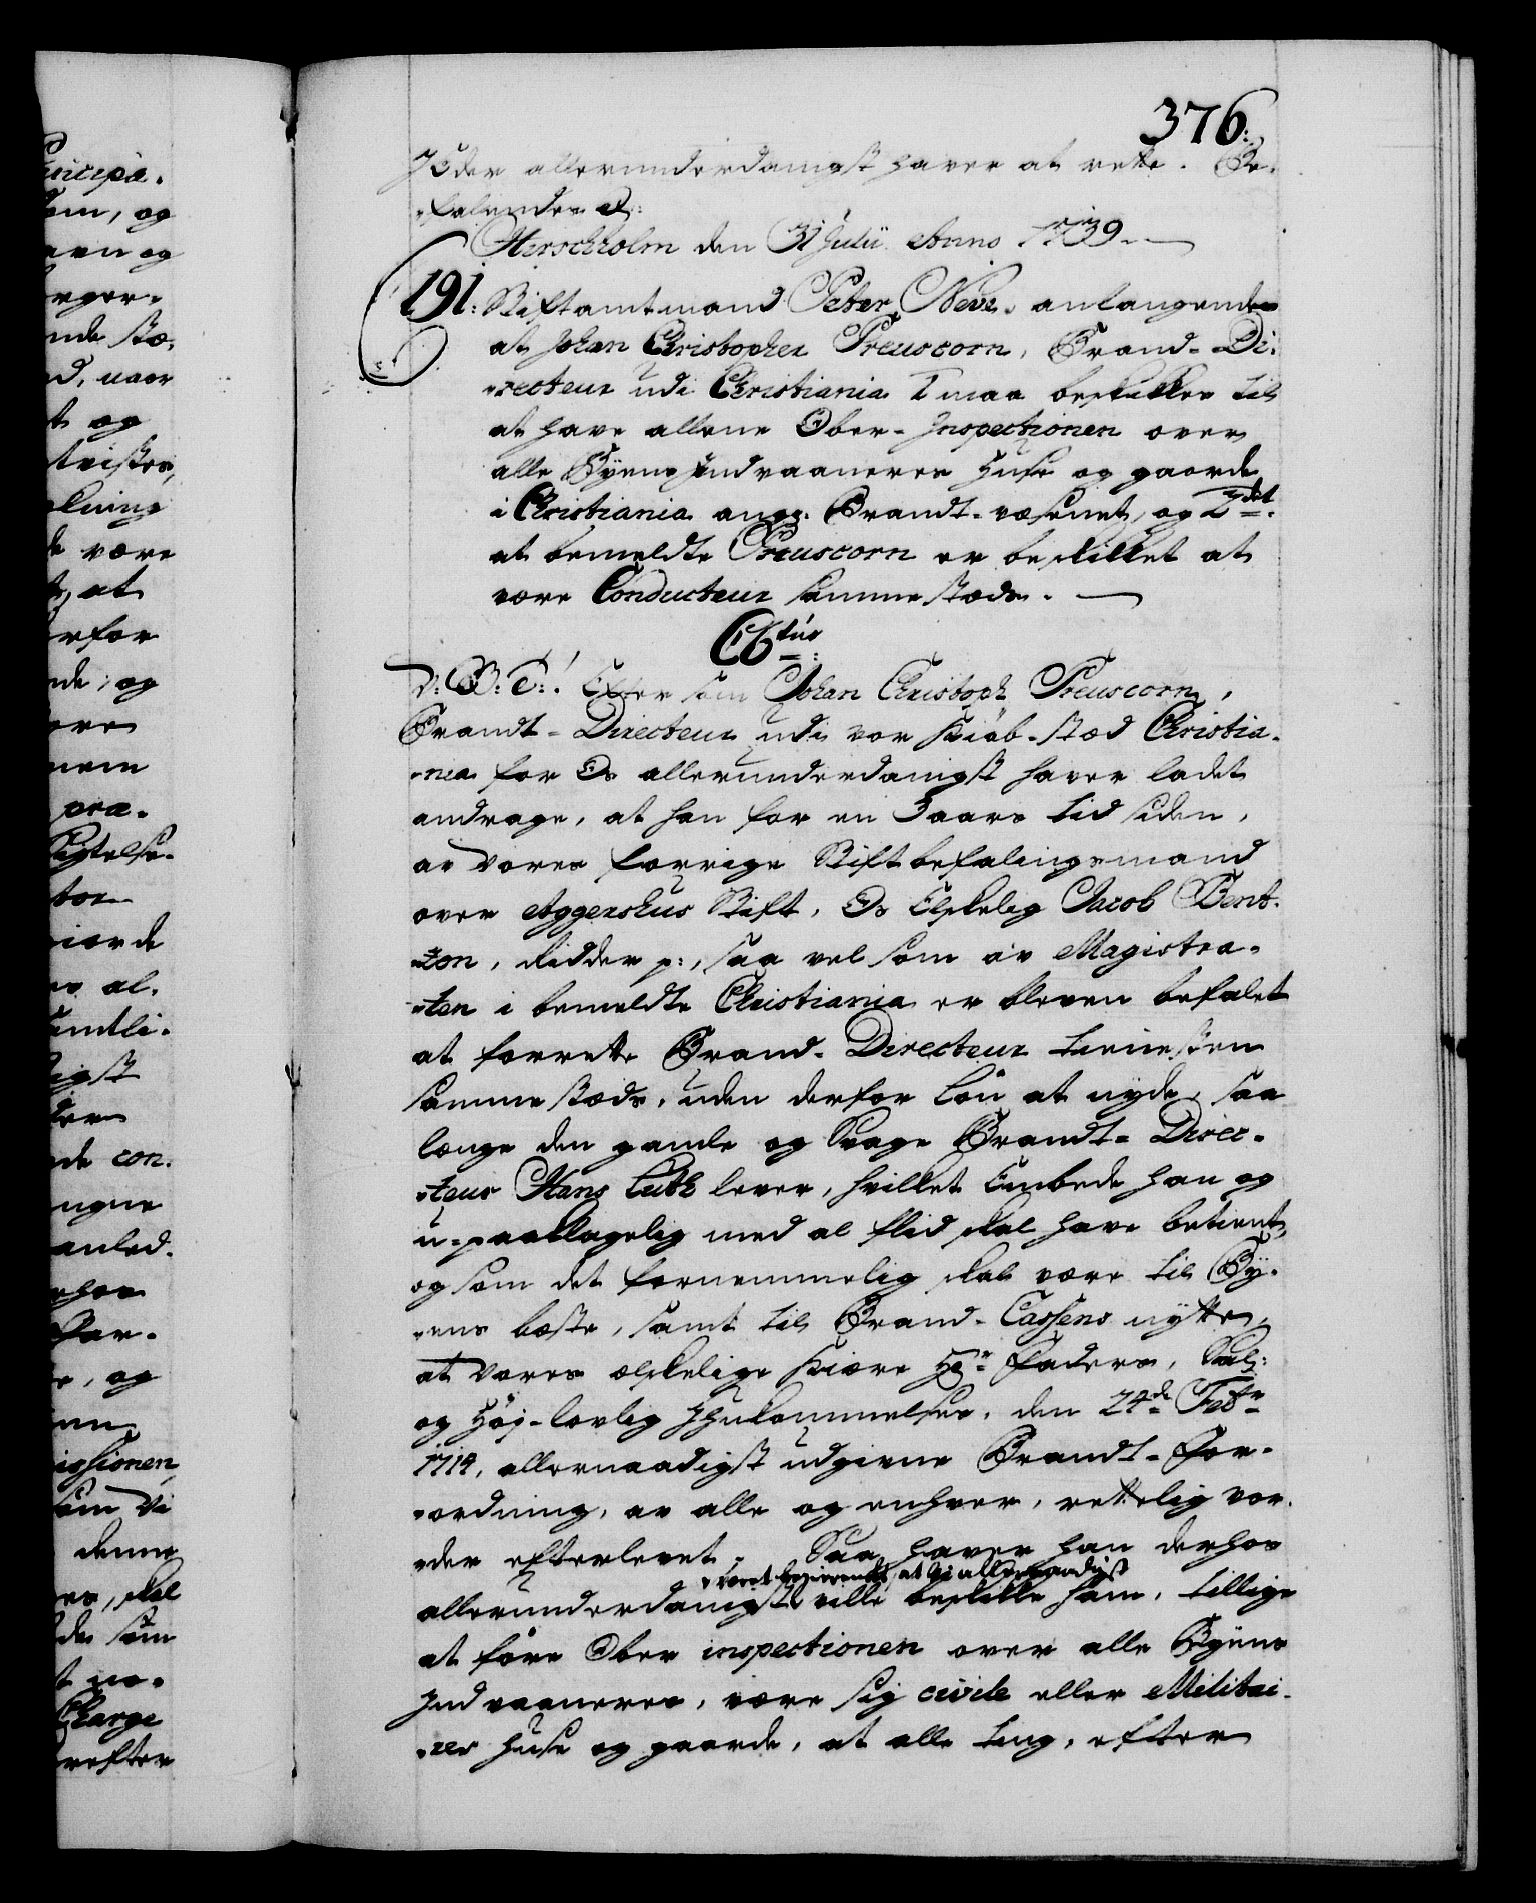 376:
I Eder allerunderdanigst haver at rette. Be-
falendes etc:
Hirschholm den 31 Julii Anno 1739.
191: Stiftamtmand Peter Neve, anlangende
at Johan Christopher Preuscorn, Brand-Di-
recteur udi Christiania 1 maa beskikkes til
at have allene Ober-Inspectionen over
alle Byens Indvaaneres Huse og gaarde
i Christiania angg. Brandt-væsenet, og 2det.
at bemeldte Preuscorn er beskikket at
være Conducteur sammestæds.
C6tus
V: G: T:. Eftersom Johan Christoph Preuscorn,
Brandt-Directeur udi vor Kiøb-stæd Christia-
nia for Os allerunderdanigst haver ladet
andrage, at han for en 3 aars tid siden,
av Vores forrige Stiftbefalingsmand
over Aggershus Stift, Os Elskelig Jacob Bent-
zon, Ridder p:, saa vel som av Magistra-
ten i bemeldte Christiania er bleven befalet
at forrette Brand-Directeur tienesten
sammestæds, uden derfor Løn at nyde, saa
længe den gamle og svage Brandt-Direc-
teur Hans Luth lever, hvilket Embede han og
u-paaklagelig med al flid skal have betient,
og som det fornemmelig skal være til By-
ens bæste, samt til Brand-Cassens nytte,
at Vores elskelige kiære Hr Faders, Sal:
og Høj-lovlig Ihukommelses, den 24de Febr
1714, allernaadigst udgivne Brandt-For-
ordning, av alle og enhver, rettelig vor-
der efterlevet. Saa haver han derhos
været begierende, at Vi allernaadigst
allerunderdanigst ville beskikke ham, tillige
at føre Ober inspectionen over alle Byens
Indvaaneres, være sig civile eller Militai-
res Huse og gaarde, at alle ting, efter
incipa-
om, og
avn og
orger-
nde stæ-
d, naar
t og
lning
være
at
erfor
nde, og
ere
nem
præ-
tor
giorde
al-
samtli-
igst
de con-
ugne
anled-
rhos
For-
e, og
issionen,
som Vi
denne
skal
som
Charge
refter